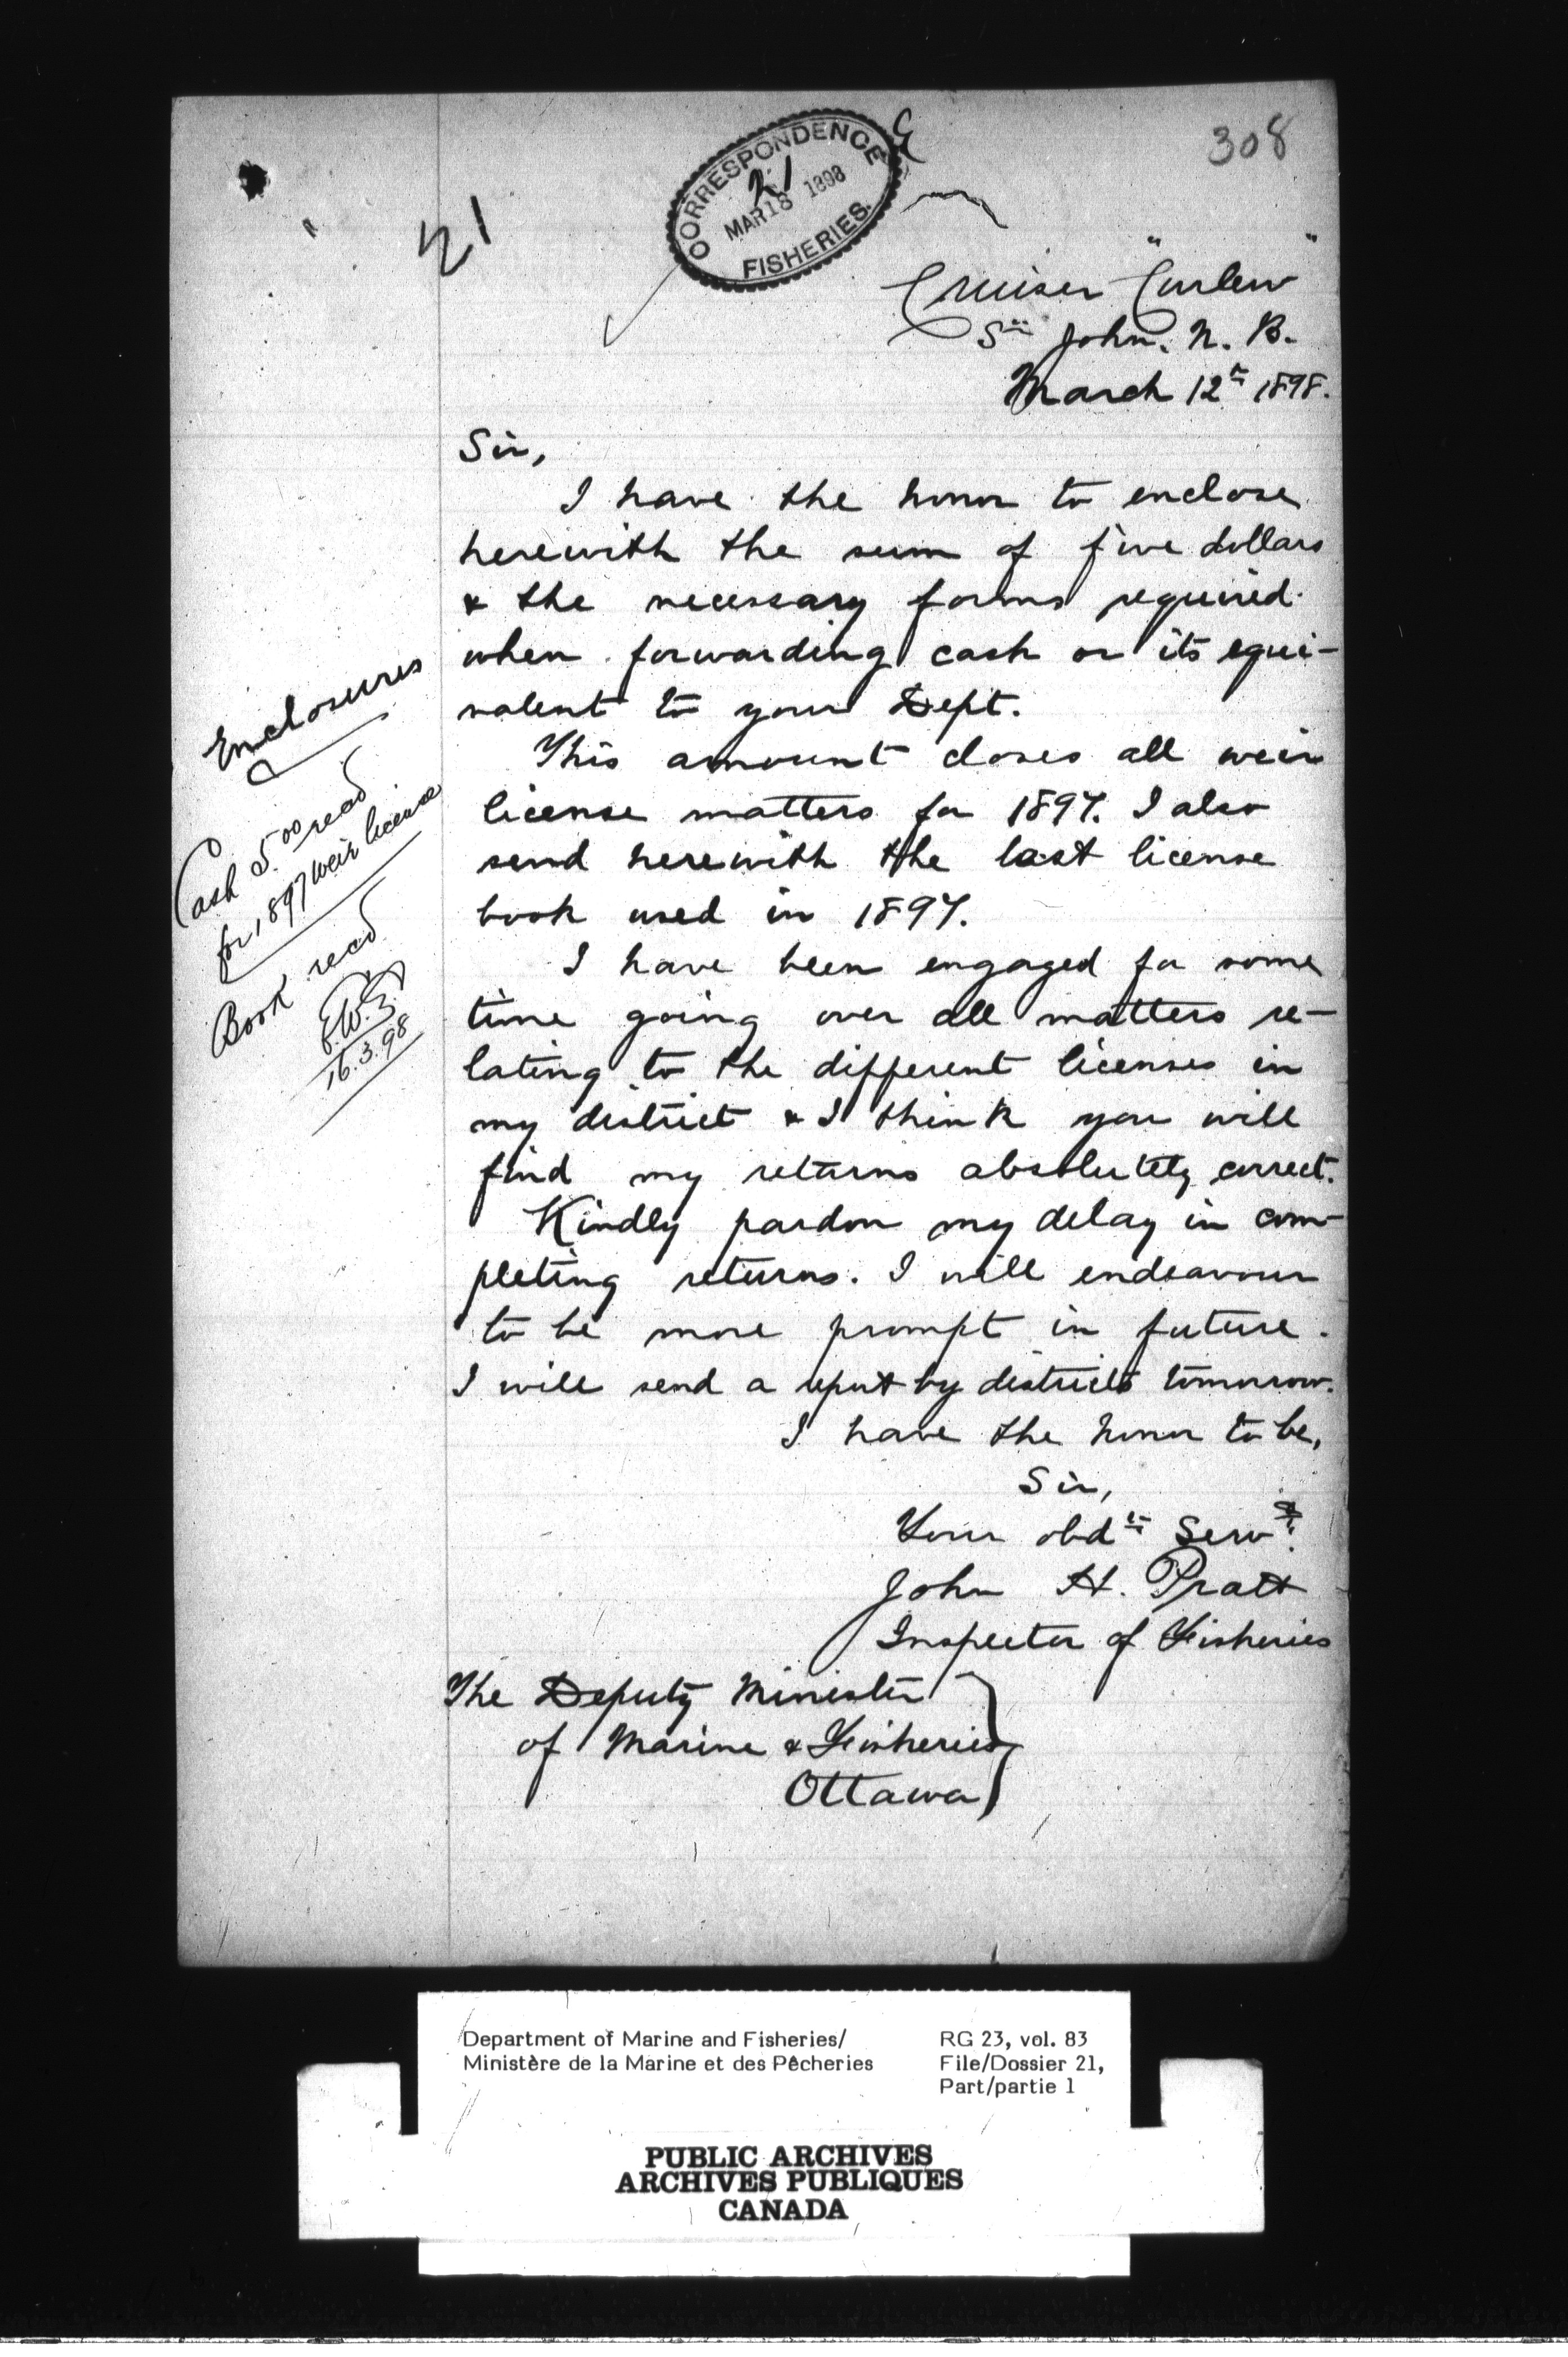 308
CORRESPONDENCE
21
MAR 18 1898
FISHERIES.
21
Cruiser "Curlew"
St John. N. B.
March 12th 1898.
Sir,
I have the honor to enclose
herewith the sum of five dollars
& the necessary forms required
when forwarding cash or its equi-
valent to your Dept.
This amount closes all weir
license matters for 1897. I also
send herewith the last license
book used in 1897.
I have been engaged for some
time going over all matters re-
lating to the different licenses in
my district & I think you will
find my returns absolutely correct.
Kindly pardon my delay in com-
pleting returns. I will endeavour
to be more prompt in future.
I will send a report by districts tomorrow.
I have the honor to be,
Sir,
Your obdt Servt.
John H. Pratt
Inspector of Fisheries
The Deputy Minister
of Marine & Fisheries
Ottawa
Enclosures
Cash 5.00 recd
for 1897 weir license
Book recd
16.3.98
Department of Marine and Fisheries/
Ministère de la Marine et des Pêcheries
RG 23, vol. 83
File/Dossier 21,
Part/partie 1
PUBLIC ARCHIVES
ARCHIVES PUBLIQUES
CANADA